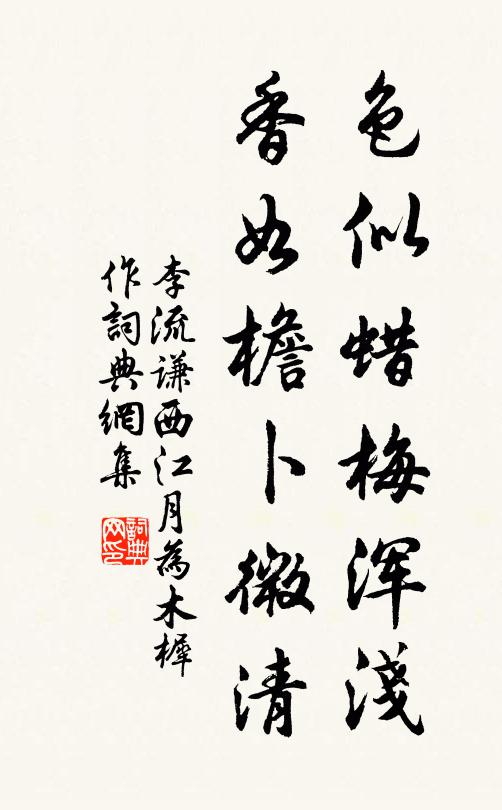 色似蜡梅浑淺
香如檐卜微清
李流谦西江月為木樨
作詞典網集
詞典网印